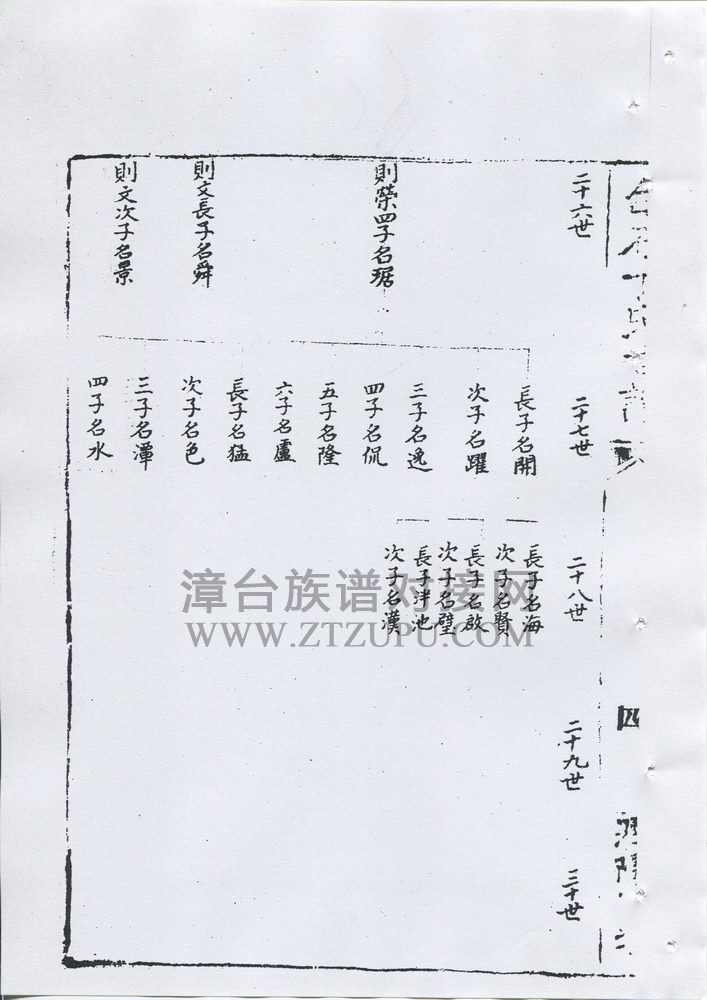 二十六世
則榮四子名琚
則文長子名舜
則文次子名景
二十七世
長子名開
次子名躍
三子名逸
四子名侃
五子名隆
六子名盧
長子名猛
次子名色
三子名潭
四子名水
二十八世
長子名海
次子名賢
長子名啟
次子名璧
長子泮池
次子名漢
二十九世
三十世
四
漳台族谱对接网
WWW.ZTZUPU.COM